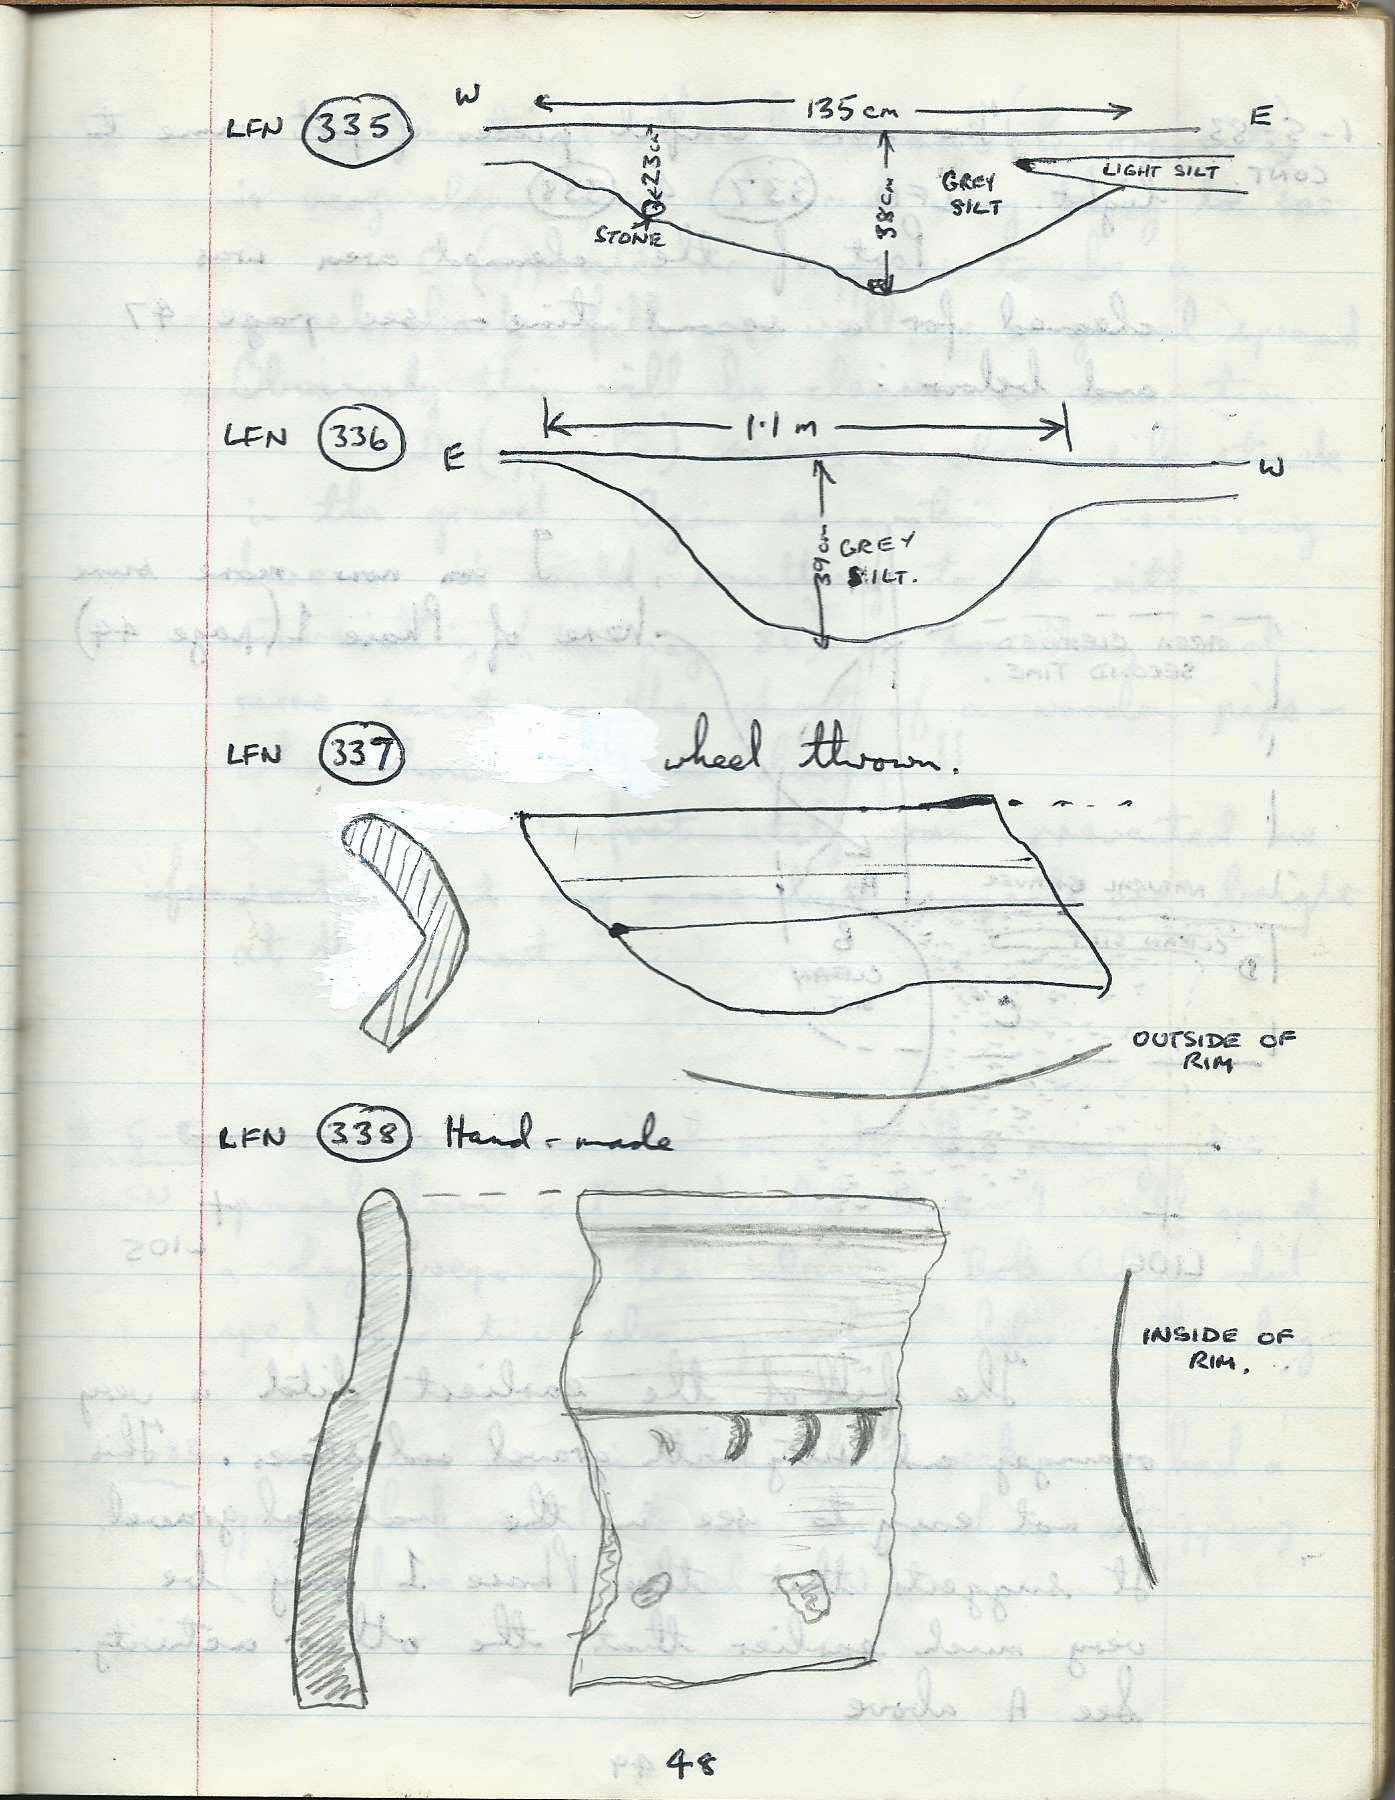 W 135cm E
LFN 335
23cm
38cm
GREY
SILT
LIGHT SILT
STONE
1.1 m
LFN 336
E W
39cm
GREY
SILT.
LFN 337 wheel thrown.
OUTSIDE OF
RIM
LFN 338 Hand-made
INSIDE OF
RIM.
48